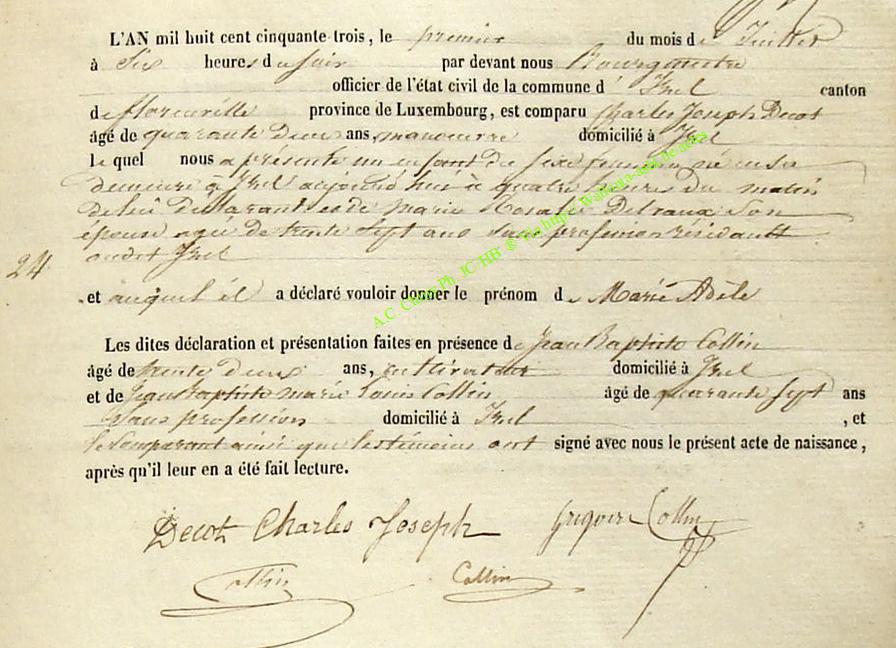 L'AN mil huit cent cinquante-trois, le premier du mois de Juillet
à Six heures du soir par devant nous Bourgmestre
officier de l'état civil de la commune d' Izel canton
de florenville province de Luxembourg, est comparu Charles Joseph Decot
âgé de quarante deux ans, manoeuvre domicilié à Izel
le quel nous a présenté un enfant du sexe féminin né en sa
demeure à Izel aujourd'hui à quatre heures du matin
de lui déclarant et de marie Rosalie Delvaux Son
épouse agée de trente Sept ans Sans profession résidant
audit Izel
24
et auquel il a déclaré vouloir donner le prénom de Marie Adèle
Les dites déclaration et présentation faites en présence de Jean Baptiste Collin
âgé de trente deux ans, cultivateur domicilié à Izel
et de Jean Baptiste marie Louis Collin âgé de quarante sept ans
Sans profession domicilié à Izel , et
le Comparant ainsi que les témoins ont signé avec nous le présent acte de naissance,
après qu'il leur en a été fait lecture.
Decot Charles Joseph Grégoire Collin
Collin Collin